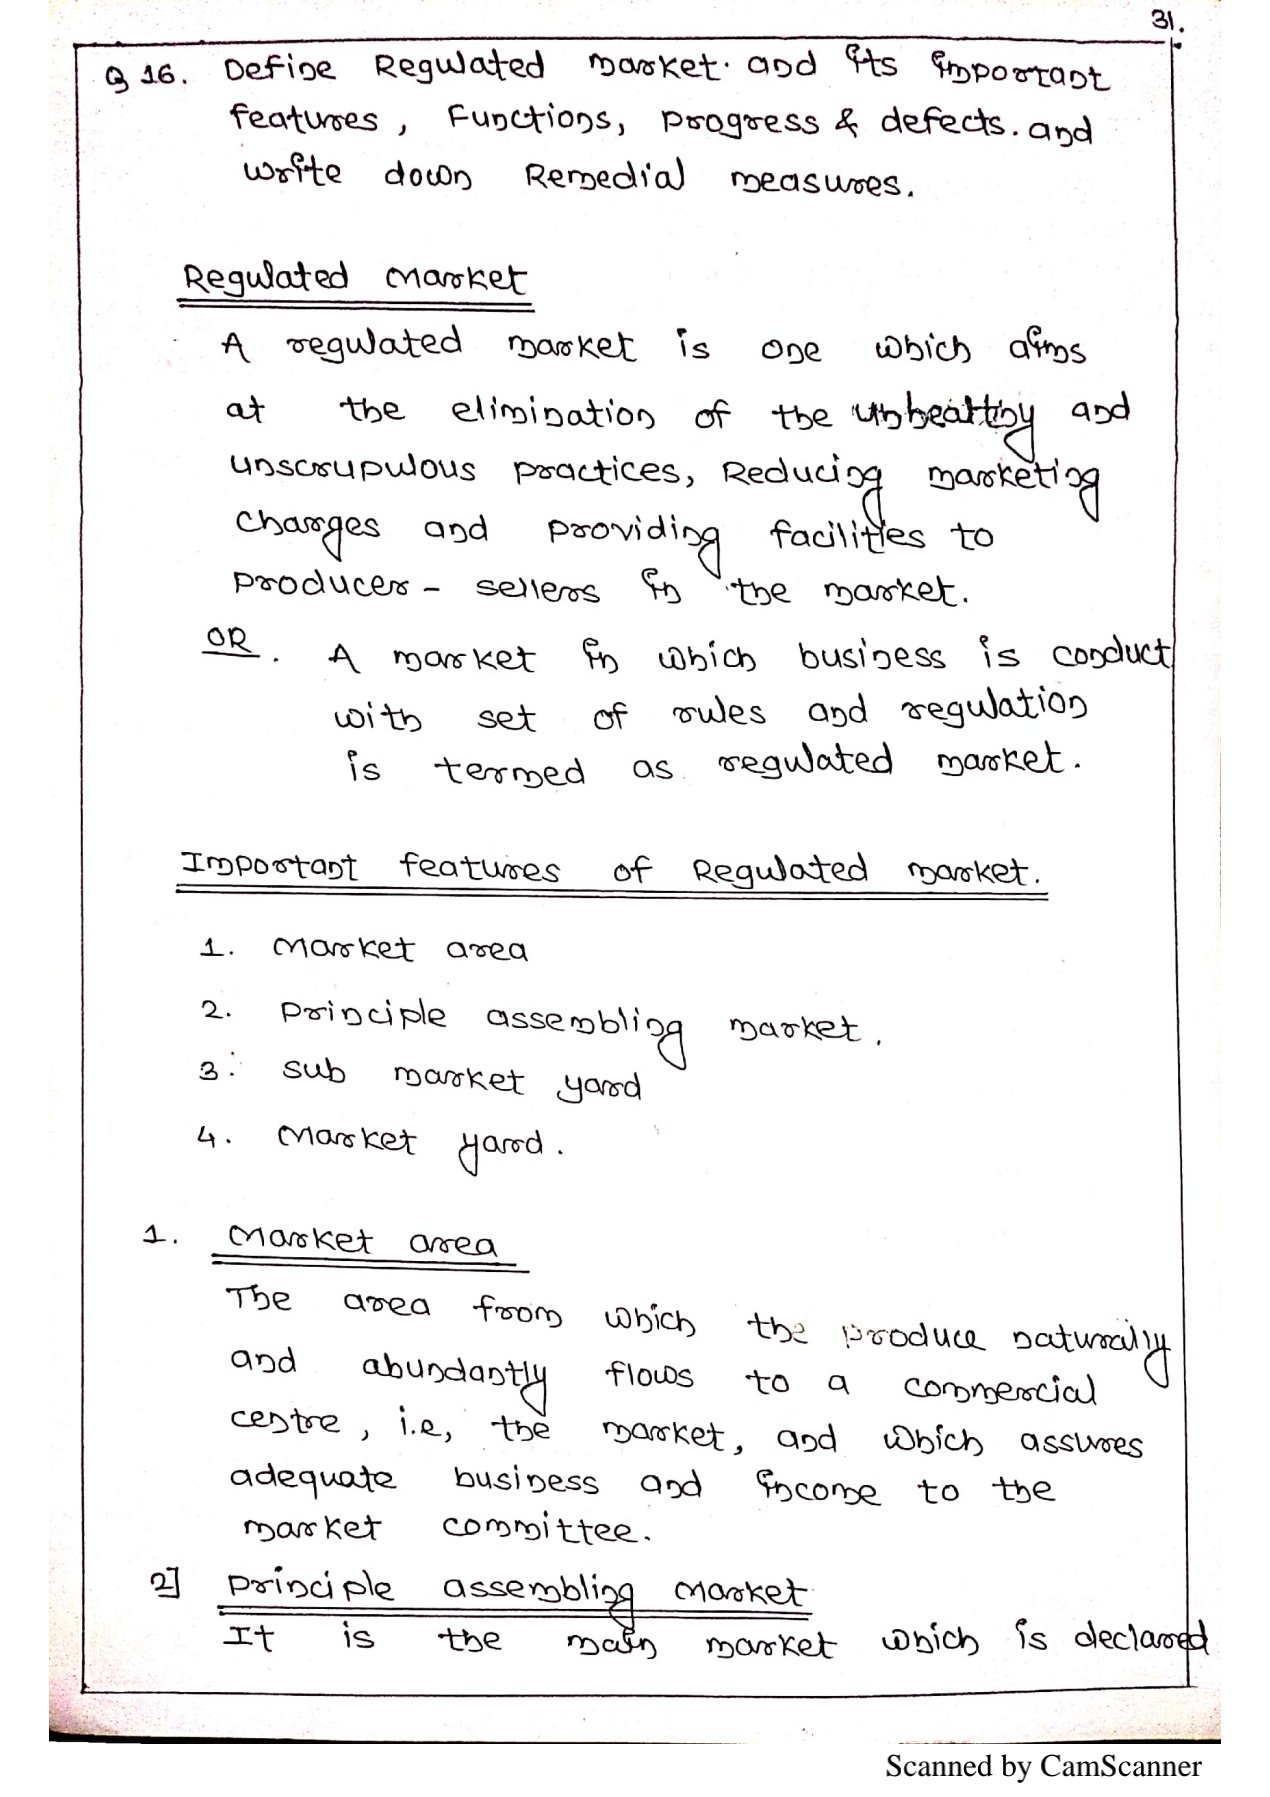 31.
Q 16. Define Regulated market. and its important
features, Functions, progress & defects. and
write down Remedial measures.
Regulated Market
A regulated market is one which aims
at the elimination of the unhealthy and
unscrupulous practices, Reducing marketing
charges and providing facilities to
producer - sellers in the market.
OR. A market in which business is conduct
with set of rules and regulation
is termed as regulated market.
Important features of Regulated market.
1. Market area
2. Principle assembling market.
3. sub market yard
4. Market yard.
1. Market area
The area from which the produce naturally
and abundantly flows to a commercial
centre, i.e, the market, and which assures
adequate business and income to the
market committee.
2] Principle assembling Market
It is the main market which is declared
Scanned by CamScanner